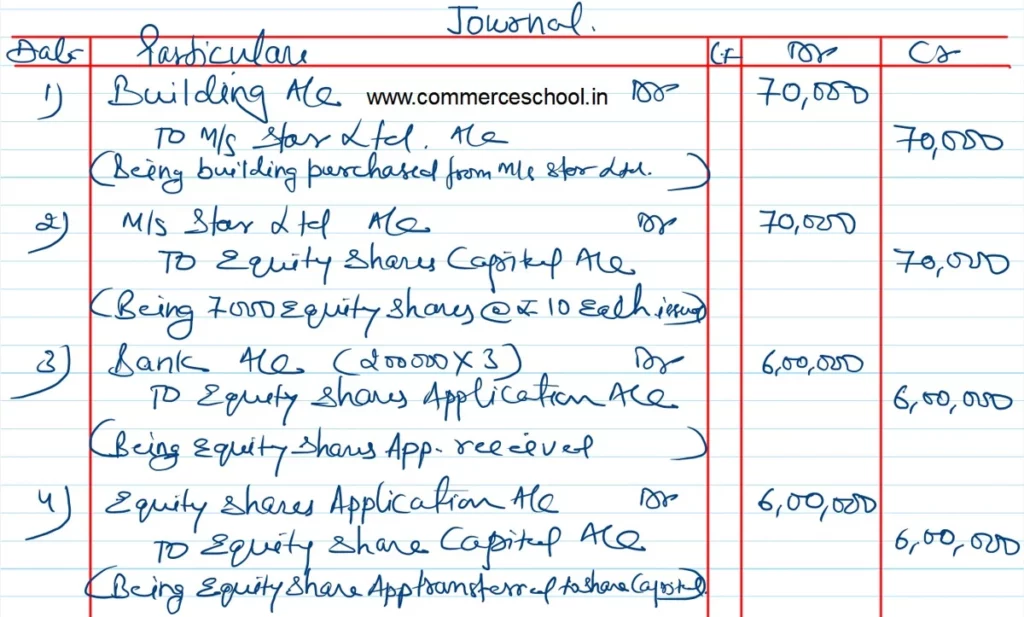 Journal.
Date Particulars LF Dr Cr
1) Building A/c www.commerceschool.in Dr 70,000
To M/s Star Ltd. A/c 70,000
(Being building purchased from M/s Star Ltd.)
2) M/s Star Ltd A/c Dr 70,000
To Equity Shares Capital A/c 70,000
(Being 7000 Equity Shares @ ₹ 10 Each issued)
3) Bank A/c (200000 X 3) Dr 6,00,000
To Equity Shares Application A/c 6,00,000
(Being Equity Shares App. received)
4) Equity Shares Application A/c Dr 6,00,000
To Equity Share Capital A/c 6,00,000
(Being Equity Share App transferred to Share Capital)